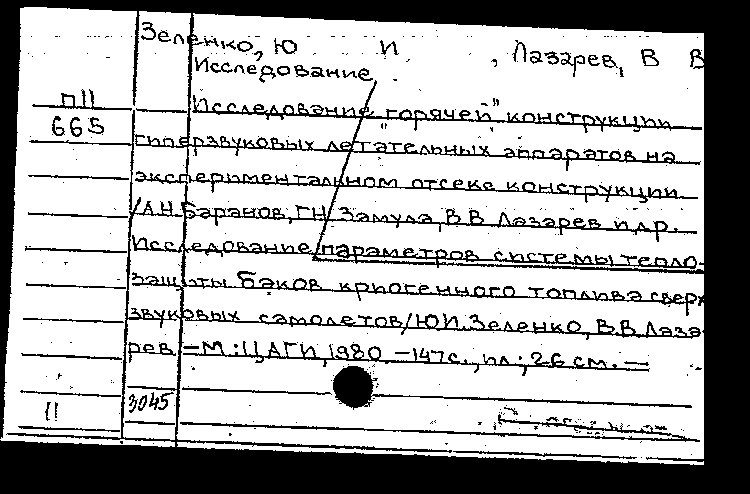 Зеленко, Ю И , Лазарев, В В
Исследование
п11
665
Исследование „горячей" конструкции
гиперзвуковых летательных аппаратов на
экспериментальном отсеке конструкции
/А.Н.Баранов, Г.Н. Замула, В.В Лазарев и др.
Исследование параметров системы тепло-
защиты баков криогенного топлива сверх
звуковых самолетов/Ю.И.Зеленко, В.В.Лаза
рев.—М.:ЦАГИ, 1980 —147с., ил; 26 см. —
11
3045